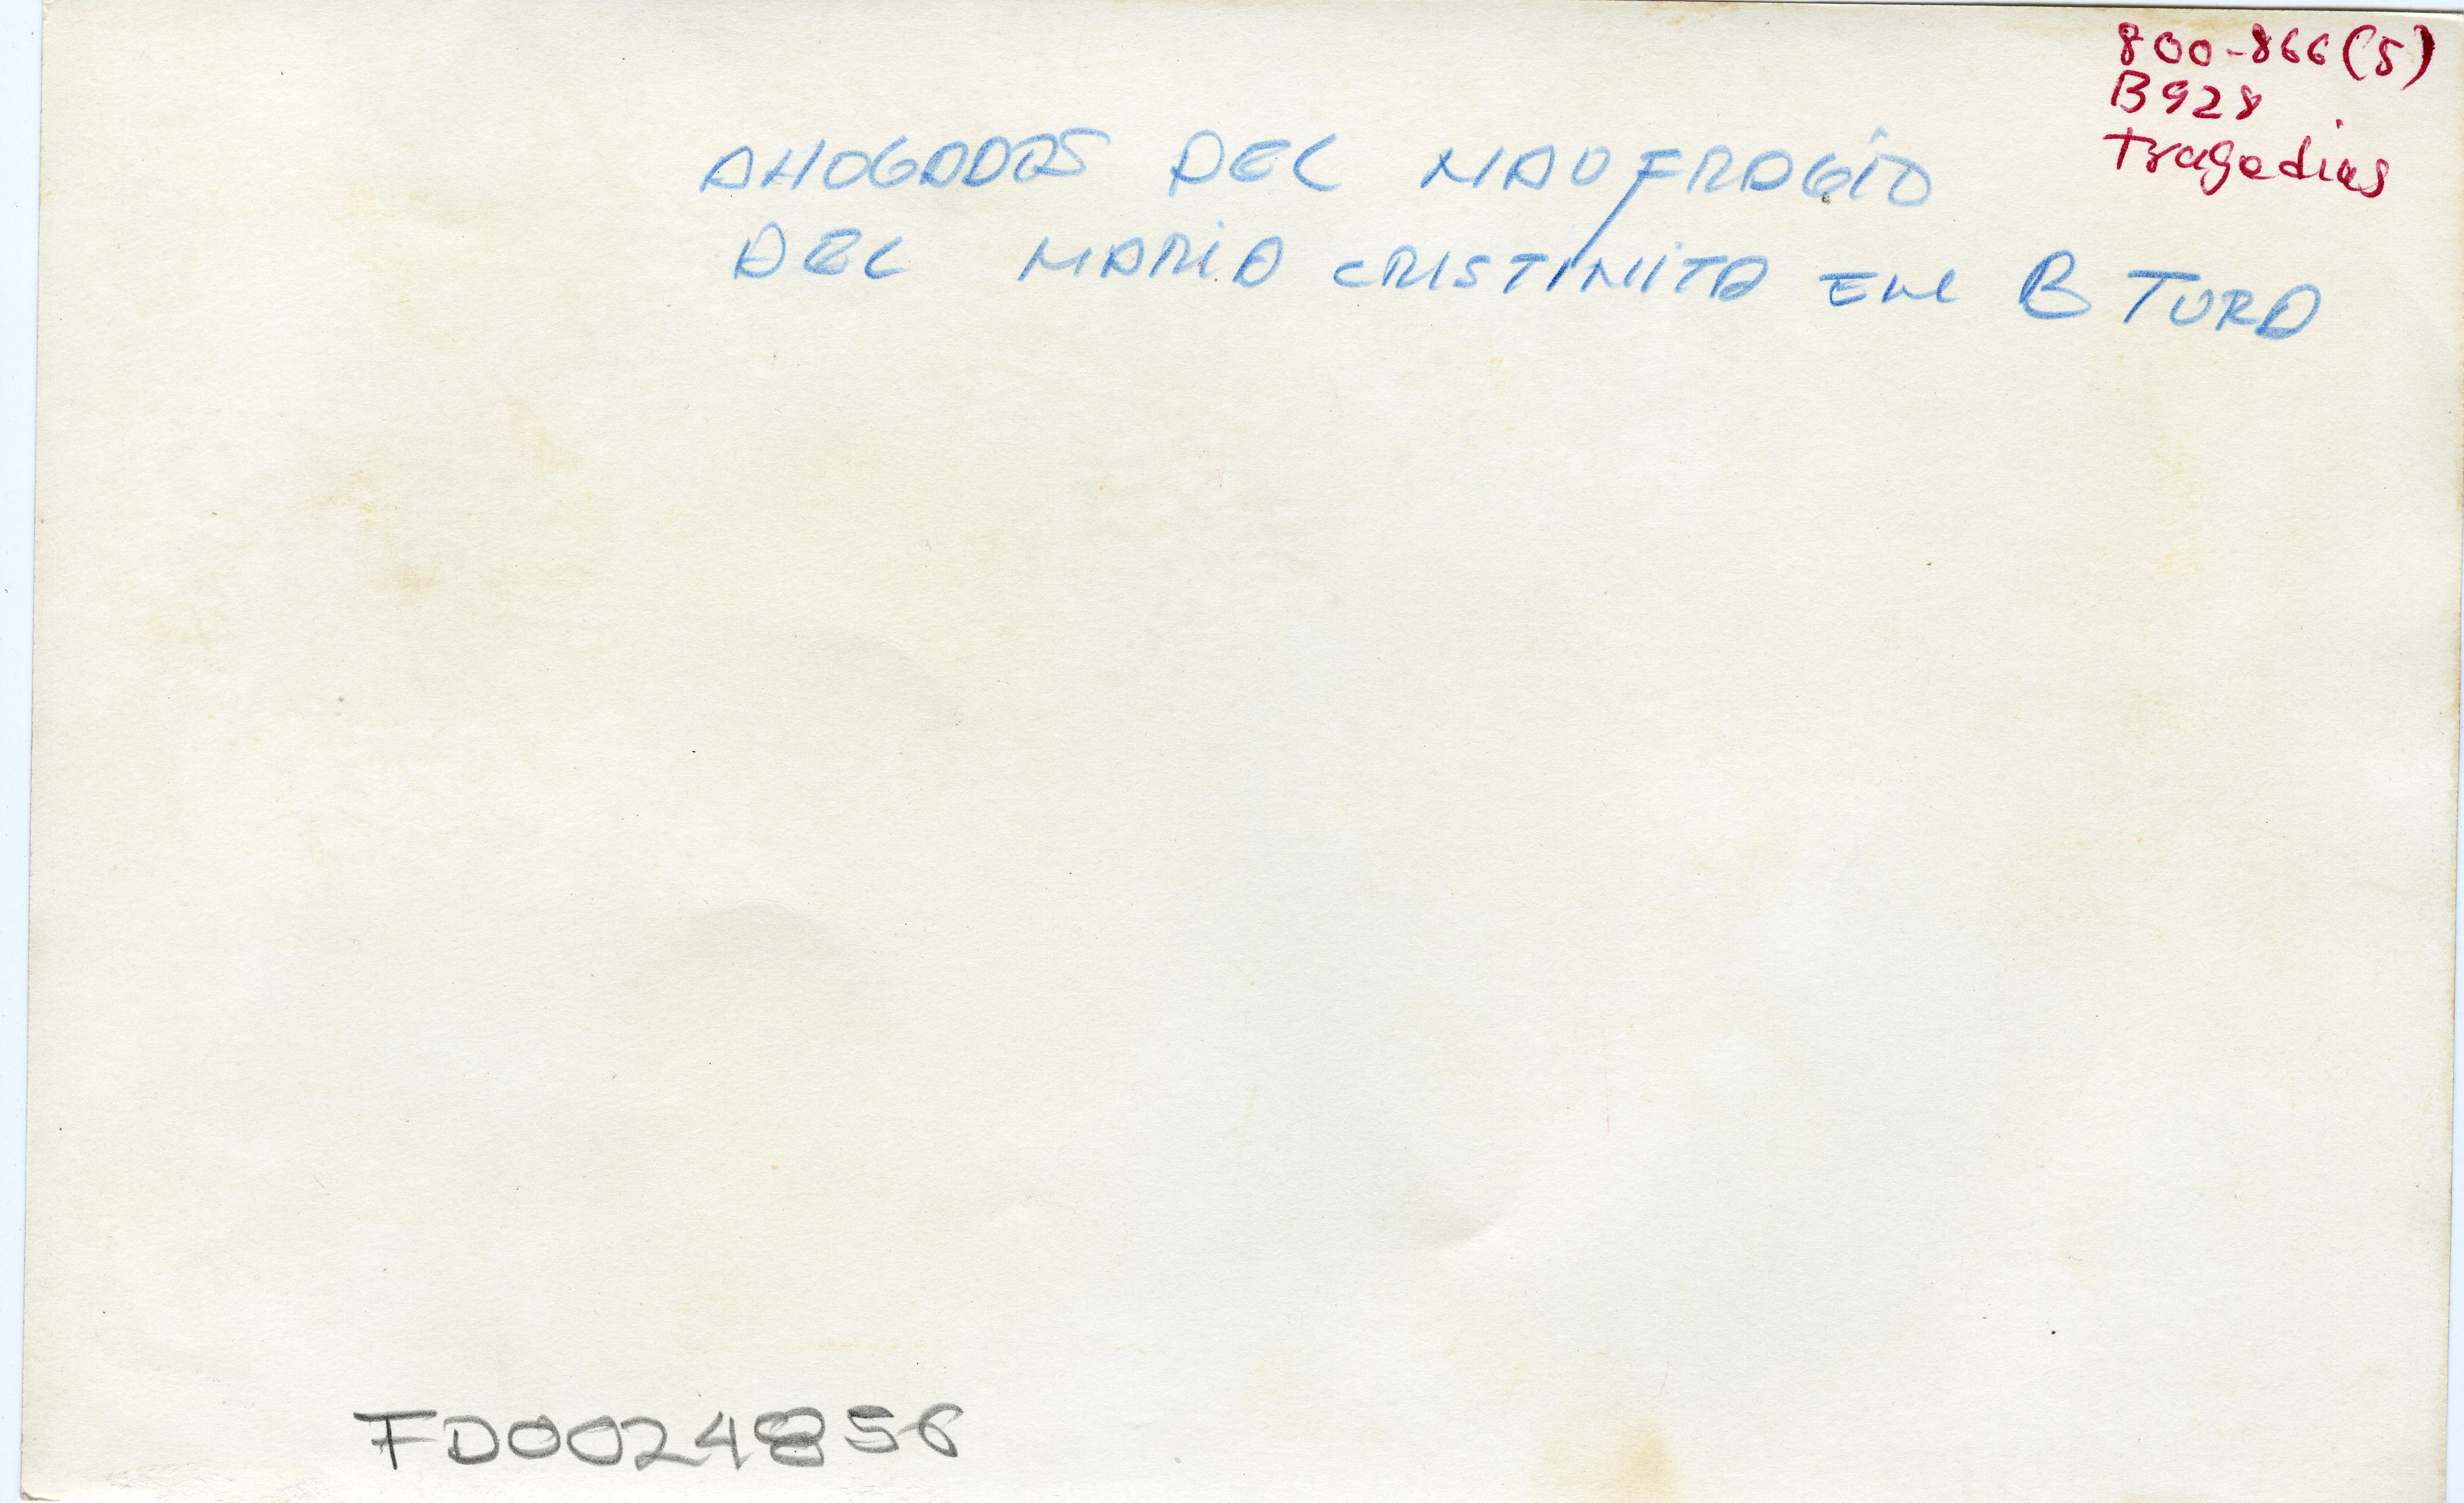 800-866(5)
B928
tragedias
AHOGADOS DEL NAUFRAGIO
DEL MARIA CRISTINITA EN B TURA
FD0024856